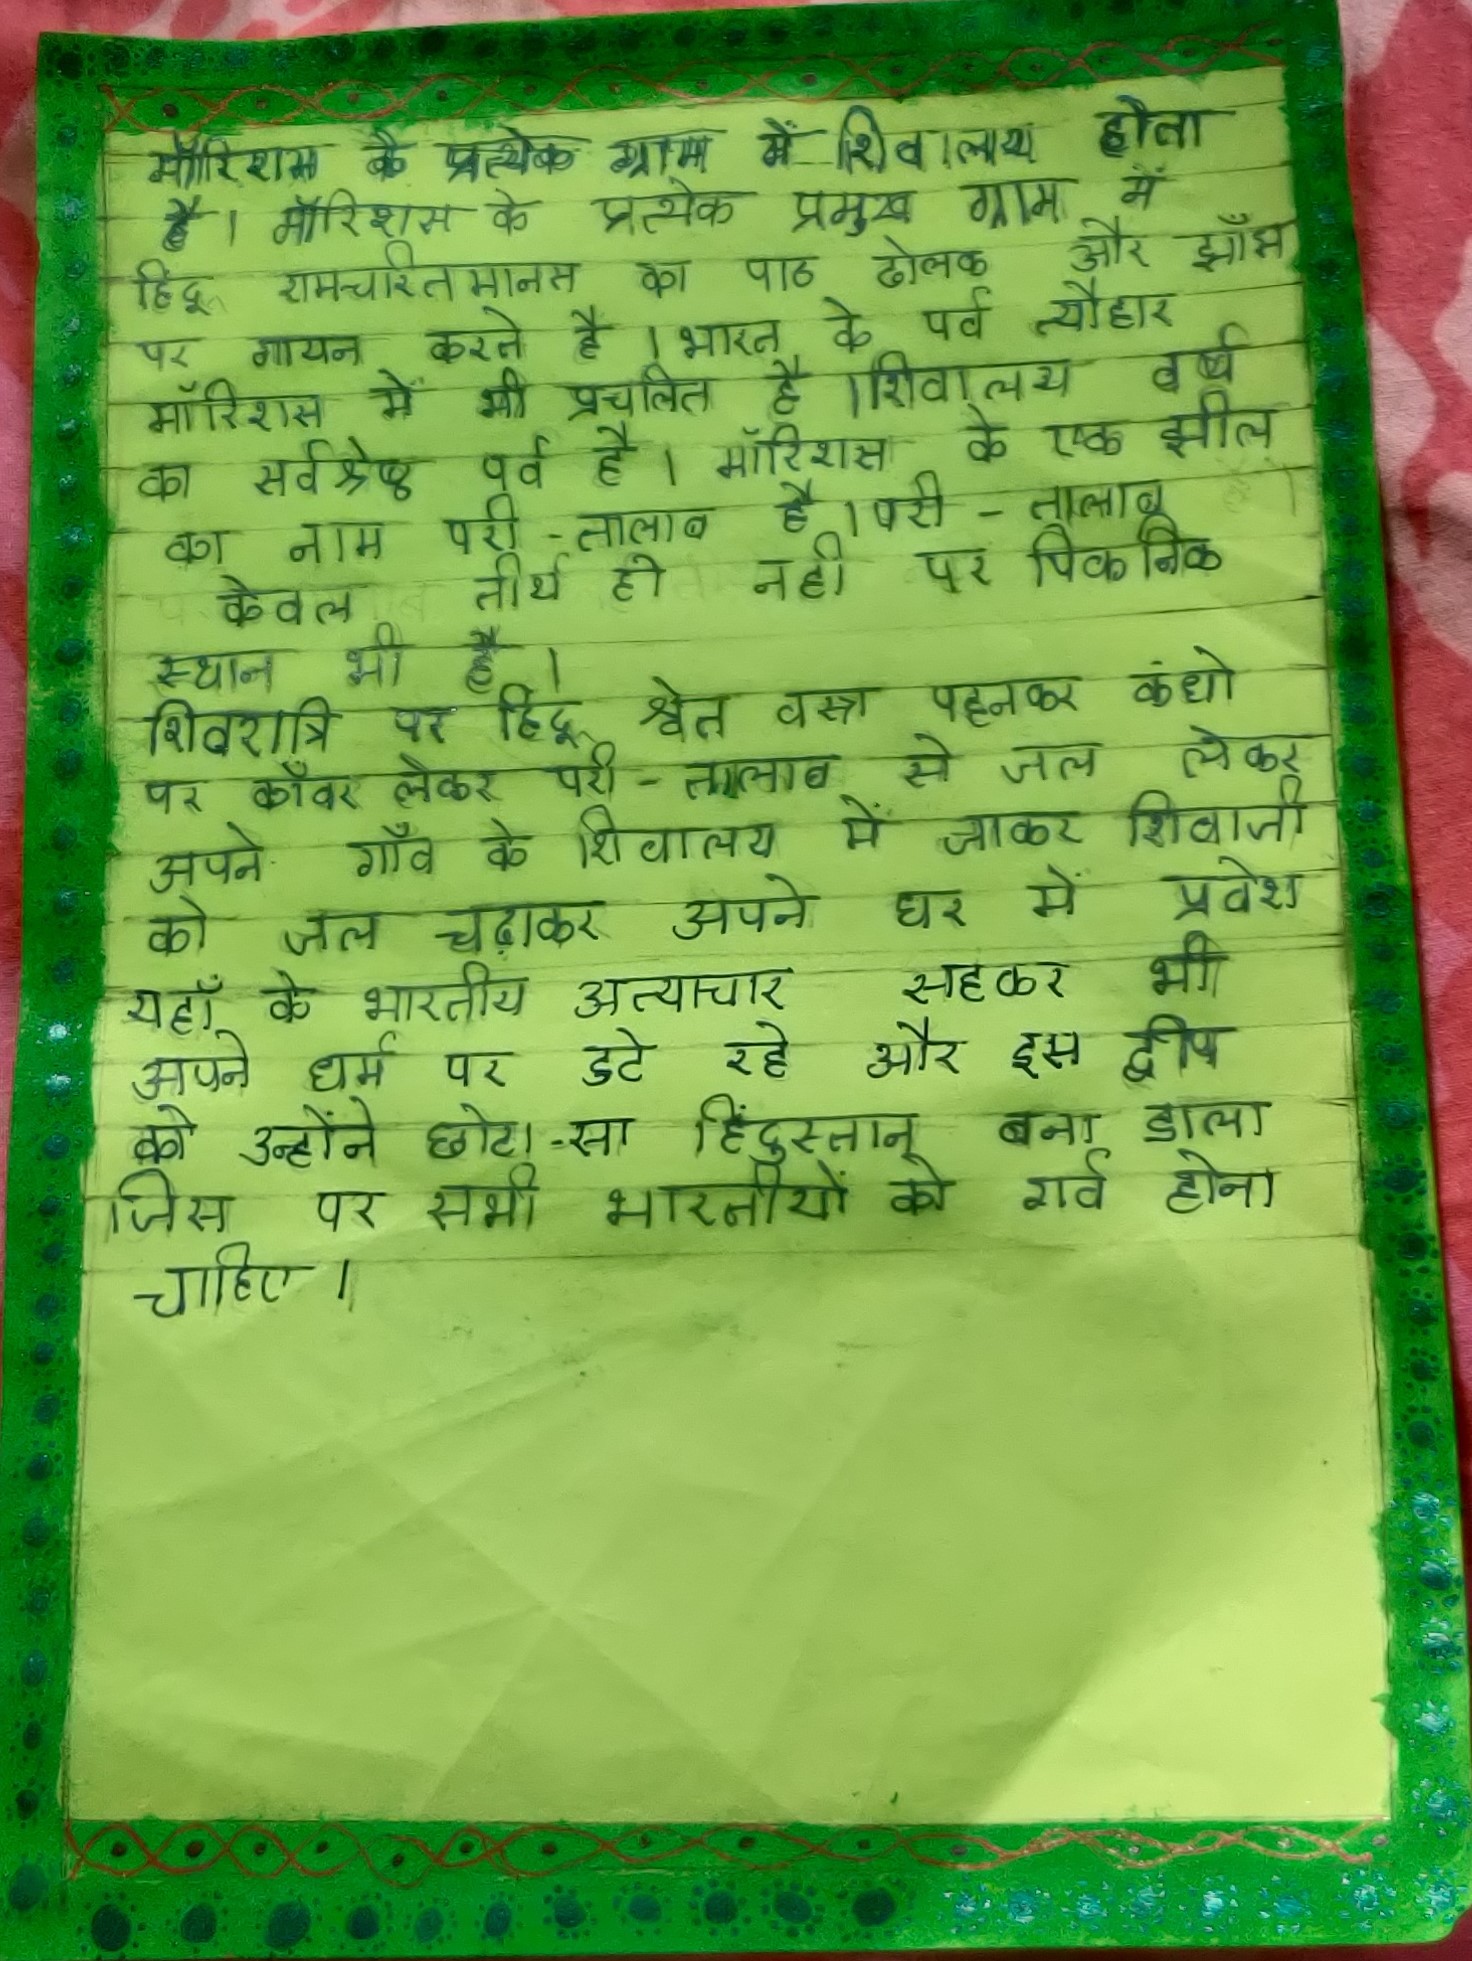 मॉरिशस के प्रत्येक ग्राम में शिवालय होता
है। मॉरिशस के प्रत्येक प्रमुख ग्राम में
हिंदू रामचरितमानस का पाठ ढोलक और झाँझ
पर गायन करते है । भारत के पर्व त्यौहार
मॉरिशस में भी प्रचलित है । शिवालय वर्ष
का सर्वश्रेष्ठ पर्व है । मॉरिशस के एक झील
का नाम परी - तालाब है । परी - तालाब
केवल तीर्थ ही नही पर पिकनिक
स्थान भी है ।
शिवरात्रि पर हिंदू श्वेत वस्त्र पहनकर कंधो
पर काँवर लेकर परी - तालाब से जल लेकर
अपने गाँव के शिवालय में जाकर शिवाजी
को जल चढ़ाकर अपने घर में प्रवेश
यहाँ के भारतीय अत्याचार सहकर भी
अपने धर्म पर डटे रहे और इस द्वीप
को उन्होंने छोटा-सा हिंदुस्तान बना डाला
जिस पर सभी भारतीयों को गर्व होना
चाहिए ।